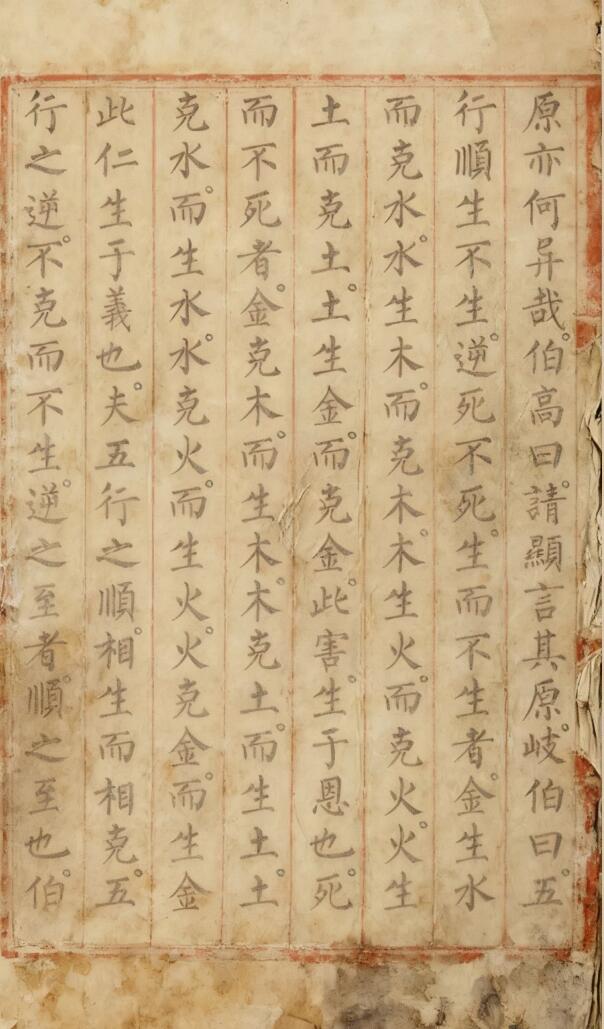 原亦何异哉。伯高曰。請顯言其原。岐伯曰。五。
行順生不生。逆死不死。生而不生者。金生水
而克水。水生木。而克木。木生火。而克火。火生
土而克土。土生金。而克金。此害生。于恩也。死。
而不死者。金克木。而生木。木克土。而生土。土
克水。而生水。水克火。而生火。火克金。而生金
此仁生于義也。夫五行之順。相生而相克。五。
行之逆。不克而不生。逆之至者。順之至也。伯。